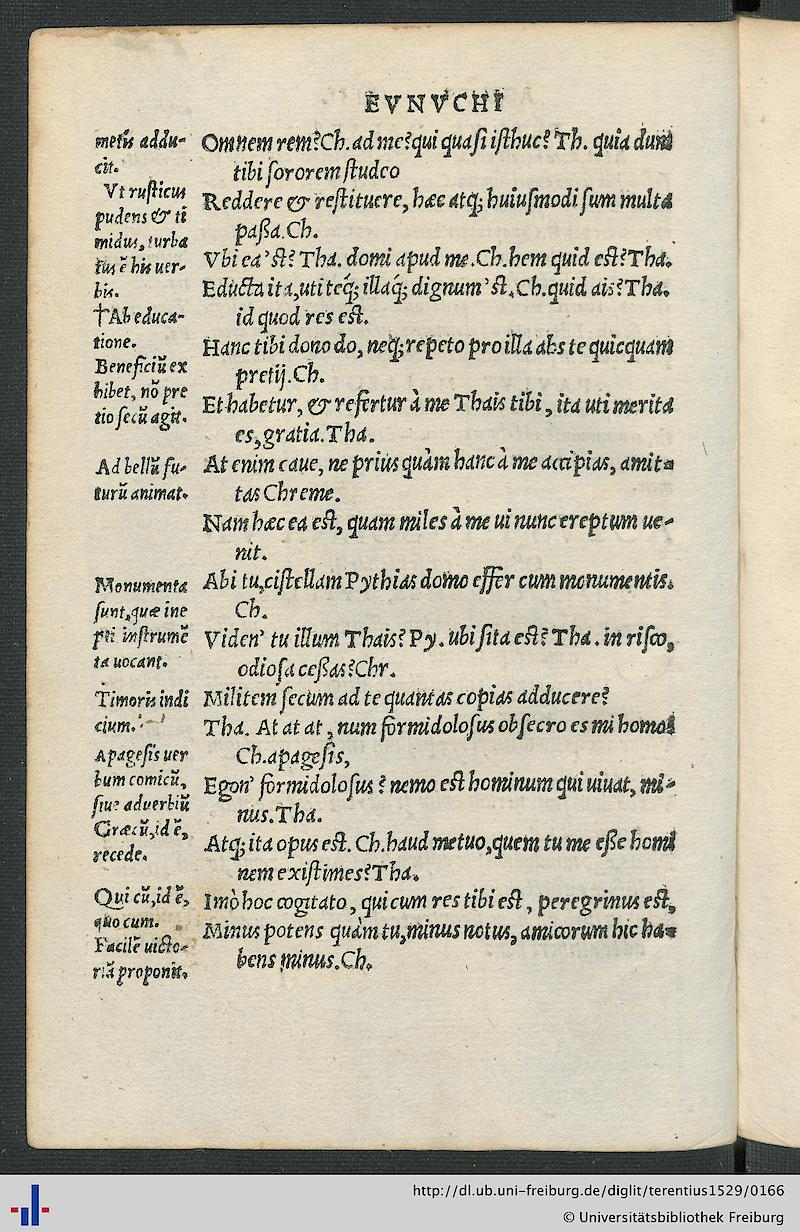 EVNVCHI
metũ addu-
cit.
Vt rusticus
pudens & ti
midus, turba
tus ẽ his uer-
bis.
†Ab educa-
tione.
Beneficiũ ex
hibet, nõ pre
tio secũ agit.
Ad bellũ fu-
turũ animat.
Monumenta
sunt, quæ ine
pti instrumẽ
ta uocant.
Timoris indi
cium.
Apagesis uer
bum comicũ,
siue aduerbiũ
Græcũ, id ẽ,
recede.
Qui cũ, id ẽ,
quo cum.
Facilẽ uicto-
riã proponit.
Omnem rem? Ch. ad me? qui quasi isthuc? Th. quia dum
tibi sororem studeo
Reddere & restituere, hæc atq; huiusmodi sum multa
paßa. Ch.
Vbi ea'st? Tha. domi apud me. Ch. hem quid est? Tha.
Educta ita, uti teq́; illaq́; dignum'st. Ch. quid ais? Tha.
id quod res est.
Hanc tibi dono do, neq; repeto pro illa abs te quicquam
pretij. Ch.
Et habetur, & refertur à me Thais tibi, ita uti merita
es, gratia. Tha.
At enim caue, ne prius quàm hanc à me accipias, amit-
tas Chreme.
Nam hæc ea est, quam miles à me ui nunc ereptum ue-
nit.
Abi tu, cistellam Pythias domo effer cum monumentis.
Ch.
Viden' tu illum Thais? Py. ubi sita est? Tha. in risco,
odiosa ceßas? Chr.
Militem secum ad te quantas copias adducere?
Tha. At at at, num formidolosus obsecro es mi homo?
Ch. apagesis,
Egon' formidolosus? nemo est hominum qui uiuat, mi-
nus. Tha.
Atq; ita opus est. Ch. haud metuo, quem tu me eße homi
nem existimes? Tha.
Imò hoc cogitato, quicum res tibi est, peregrinus est,
Minus potens quàm tu, minus notus, amicorum hic ha-
bens minus. Ch.
http://dl.ub.uni-freiburg.de/diglit/terentius1529/0166
© Universitätsbibliothek Freiburg